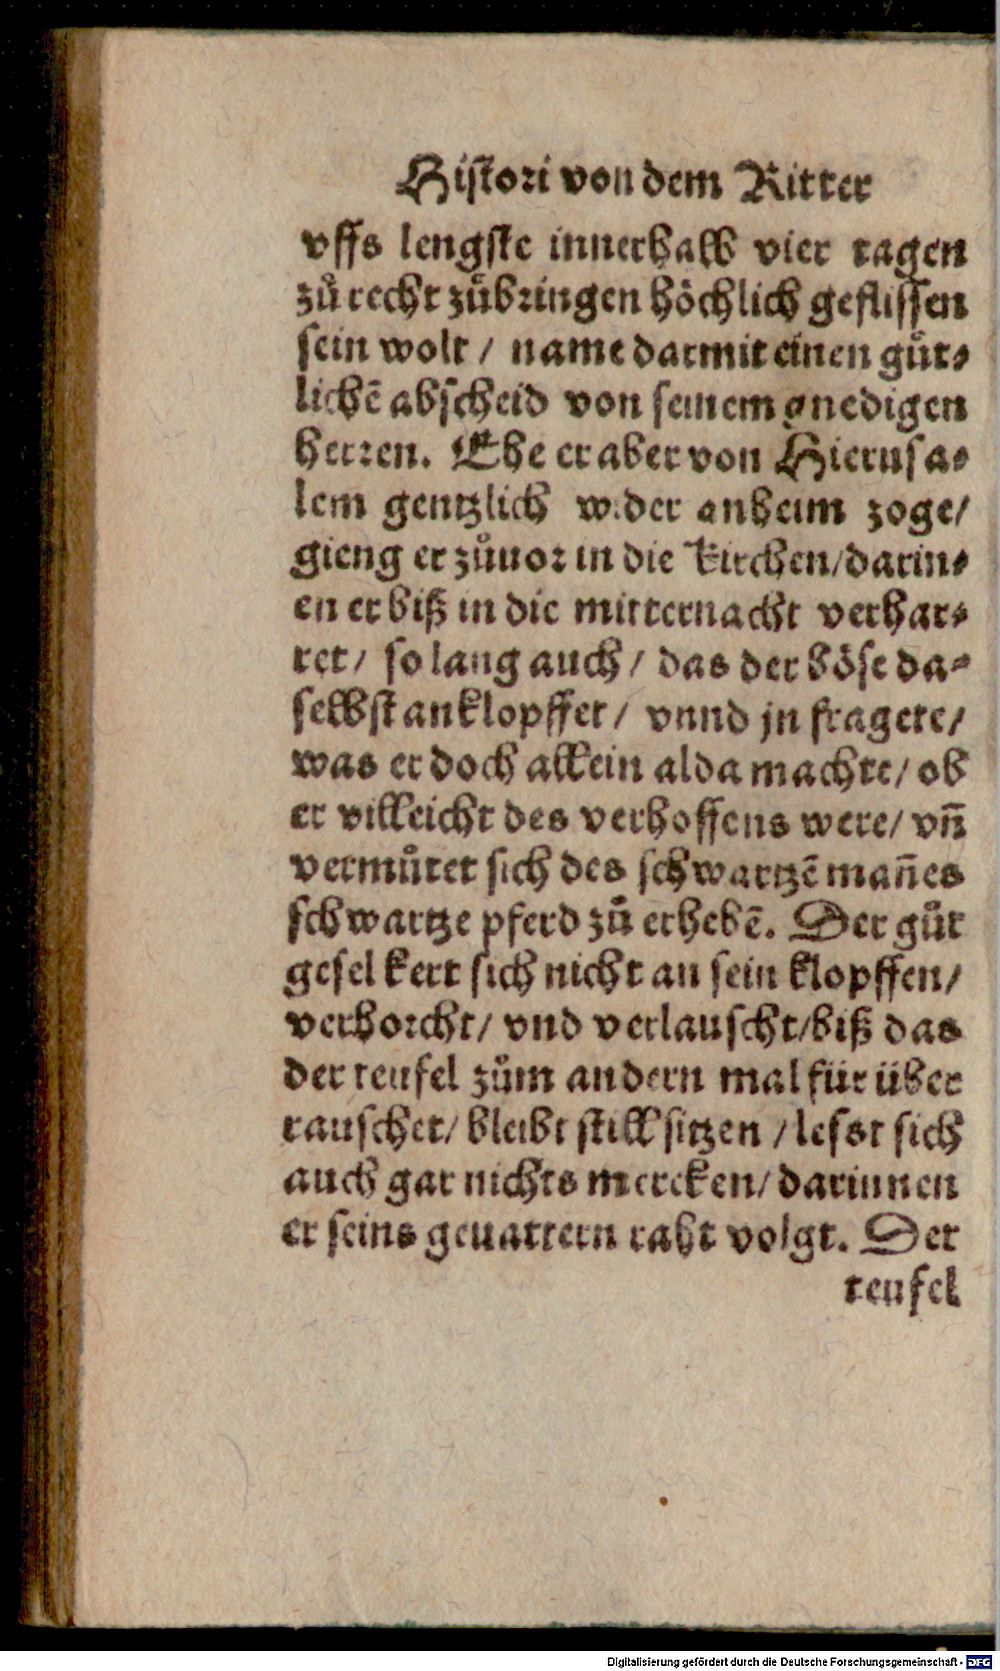 Histori von dem Ritter
vffs lengste innerhalb vier tagen
zů recht zůbringen höchlich geflissen
sein wolt / name darmit einen gůt⸗
lichē abscheid von seinem gnedigen
herren. Ehe er aber von Hierusa⸗
lem gentzlich wider anheim zoge/
gieng er zůuor in die Kirchen/darin⸗
en er biß in die mitternacht verhar⸗
ret/ so lang auch/ das der böse da⸗
selbst anklopffet/ vnnd jn fragete/
was er doch allein alda machte/ ob
er villeicht des verhoffens were/ vñ
vermůtet sich des schwartzē mañes
schwartze pferd zů erhebē. Der gůt
gesel kert sich nicht an sein klopffen/
verhorcht/ vnd verlauscht/biß das
der teufel zům andern mal für über
rauschet/ bleibt still sitzen /lesst sich
auch gar nichts mercken/ darinnen
er seins geuattern raht volgt. Der
teufel
Digitalisierung gefördert durch die Deutsche Forschungsgemeinschaft - DFG